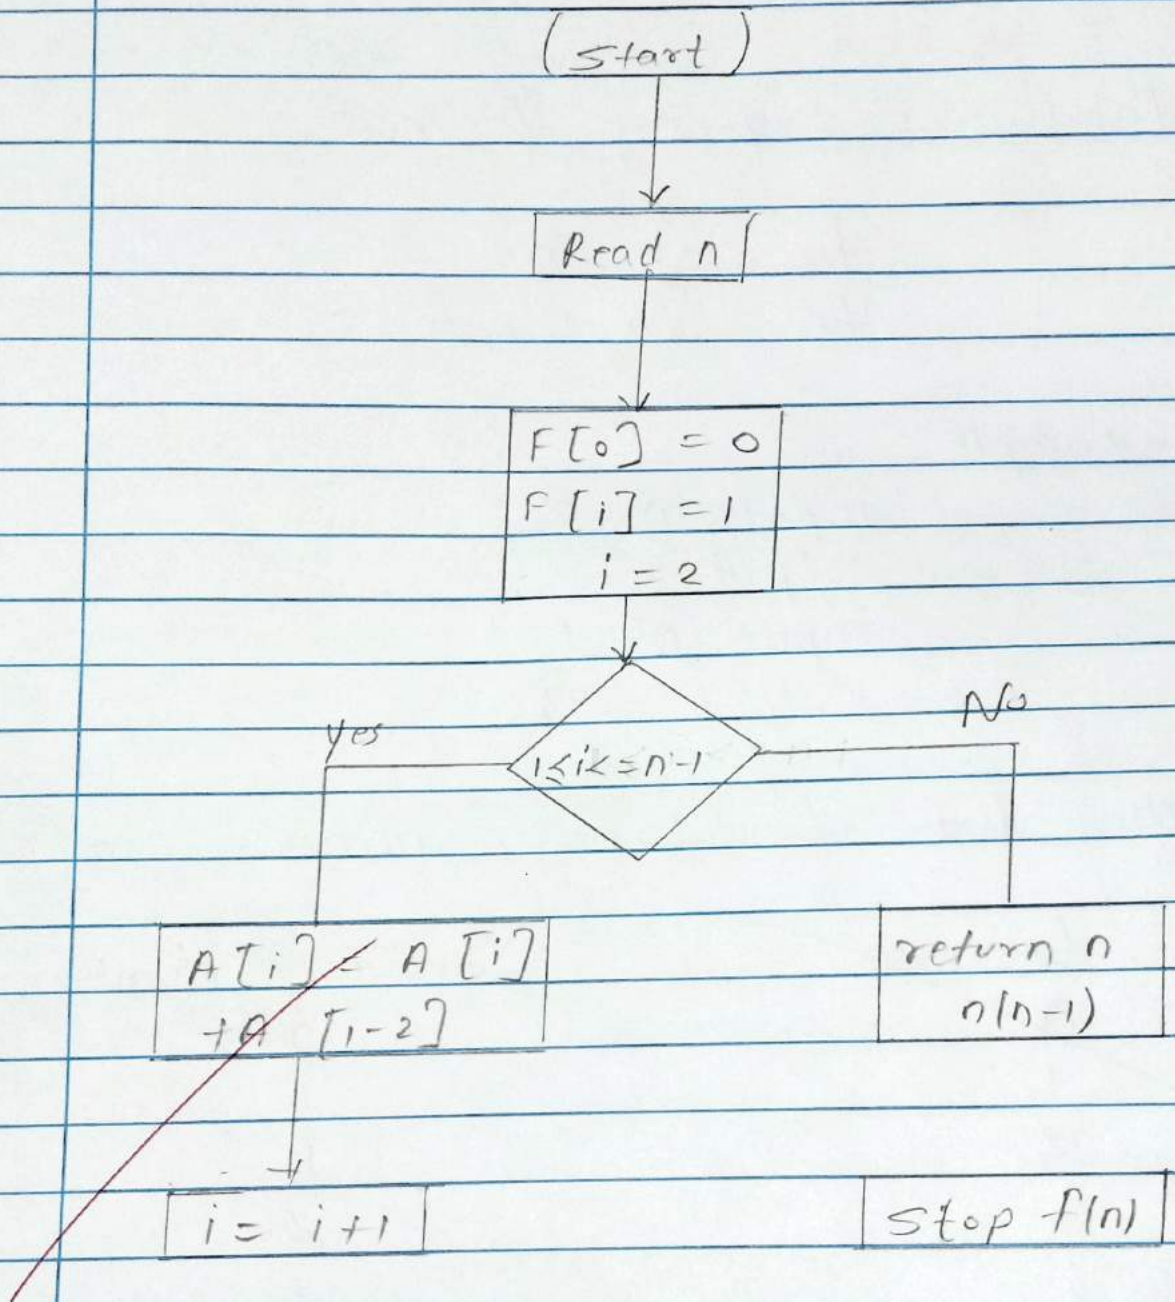 Start
Read n
F[0] = 0
F[i] = 1
i = 2
yes
No
1≤i<=n-1
A[i] = A[i]
+A [1-2]
return n
n(n-1)
i = i+1
stop f(n)